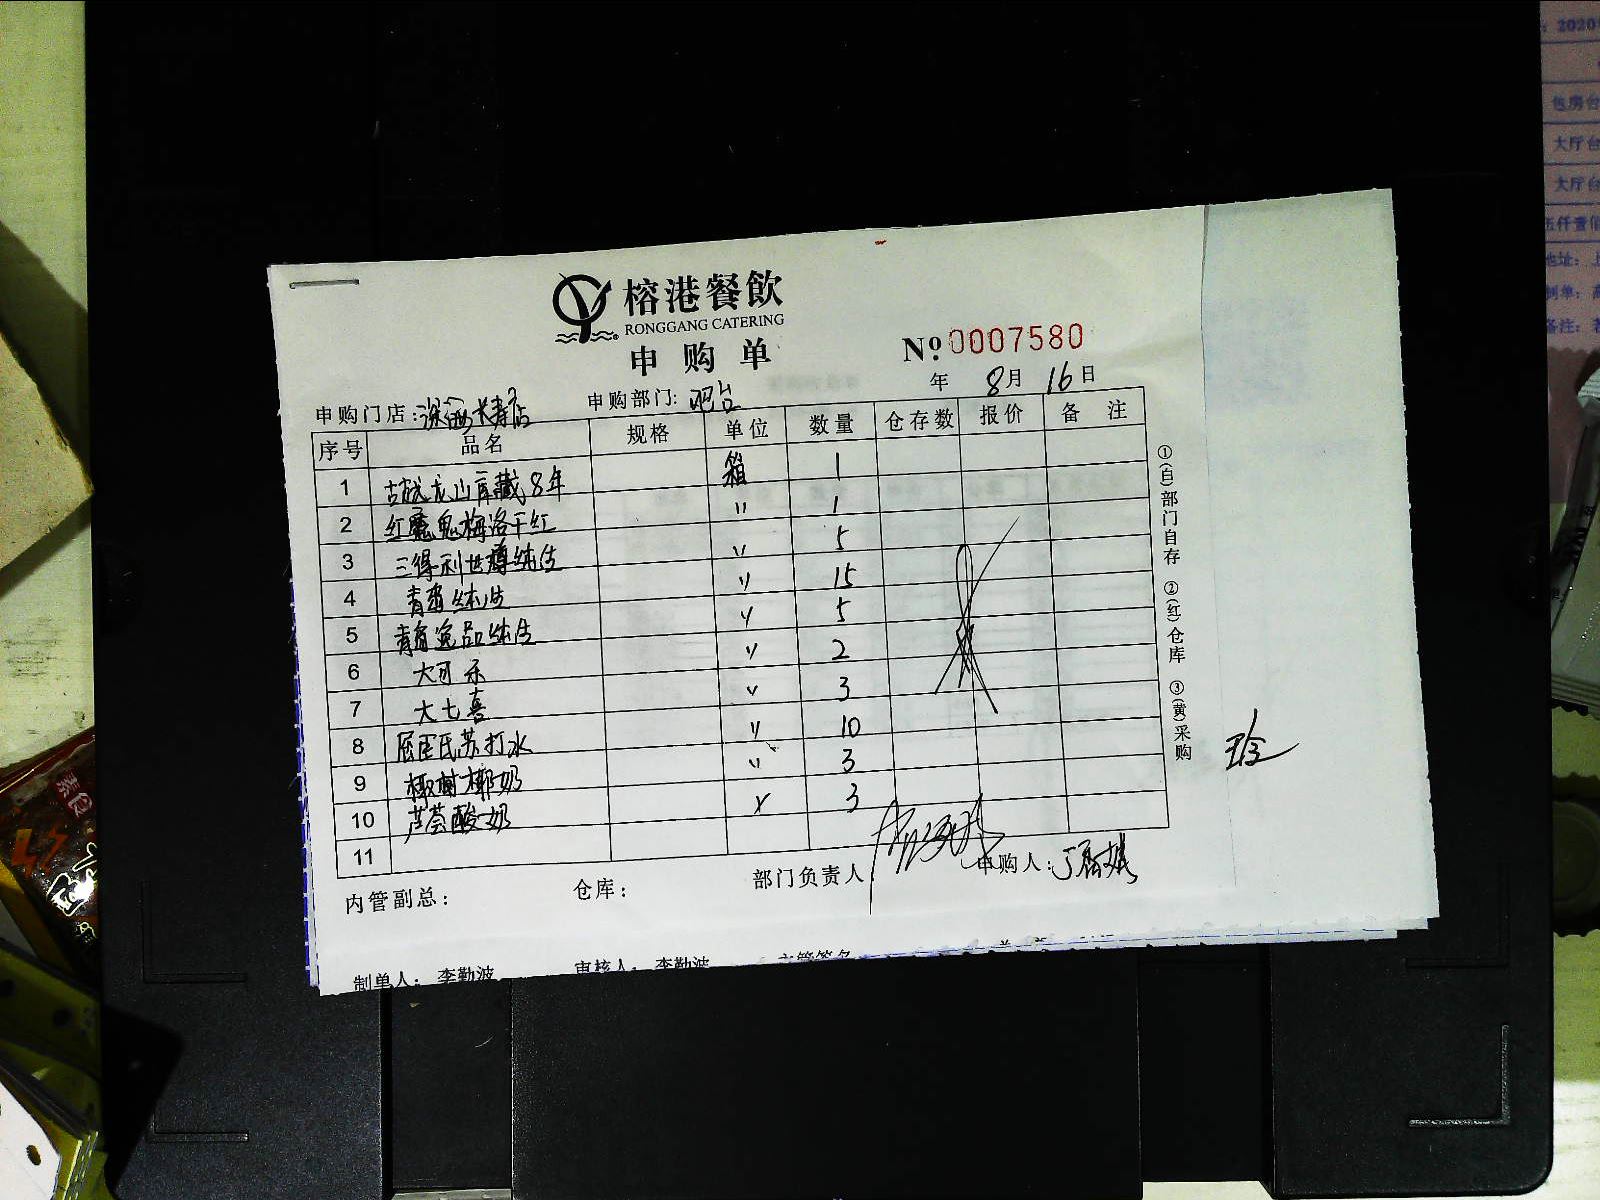 榕港餐飲
RONGGANG CATERING
申购单
№ 0007580
年 8月 16日
申购门店: 长寿店 申购部门: 吧台
序号 品名 规格 单位 数量 仓存数 报价 备 注
1 古越龙山库藏8年 箱 1
2 红魔鬼梅洛干红 〃 1
3 三得利 纯生 〃 5
4 青岛纯生 〃 15
5 青岛逸品纯生 〃 5
6 大可乐 〃 2
7 大七喜 〃 3
8 屈臣氏苏打水 〃 10
9 椰树椰奶 〃 3
10 芦荟酸奶 〃 3
11
内管副总: 仓库: 部门负责人 申购人:
①(白)部门自存 ②(红)仓库 ③(黄)采购
制单人: 李勤波 审核人: 李勤波 主管签名
2020
包房台
大厅台
大厅台
伍仟壹佰
地址: 上
制单:
备注: